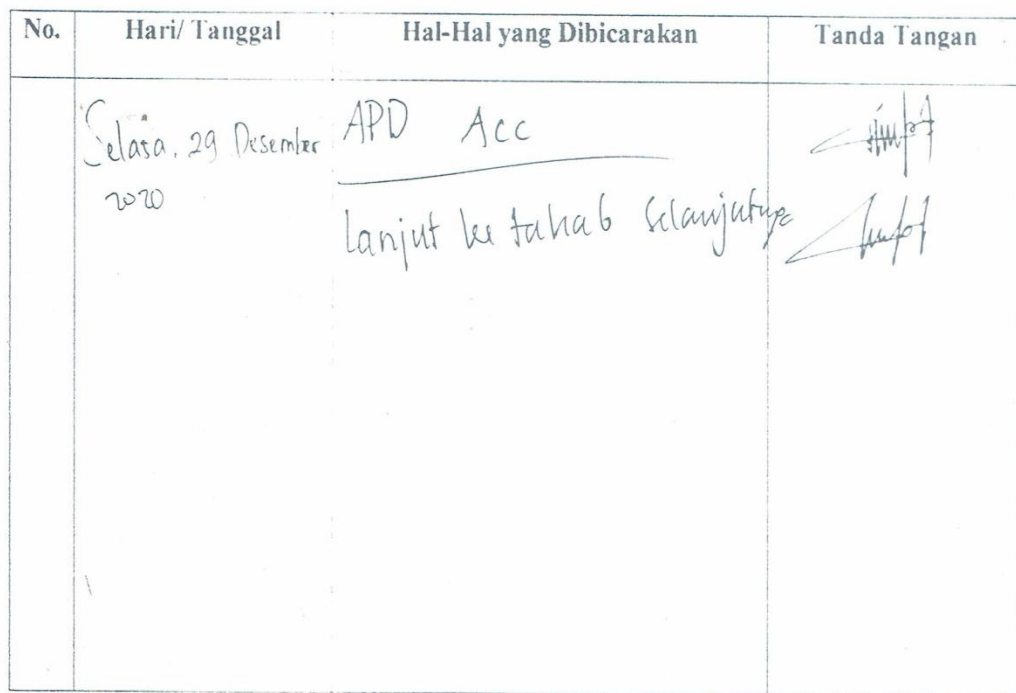 No. Hari/ Tanggal Hal-Hal yang Dibicarakan Tanda Tangan
Selasa, 29 Desember APD Acc
2020
Lanjut ke tahab selanjutnya